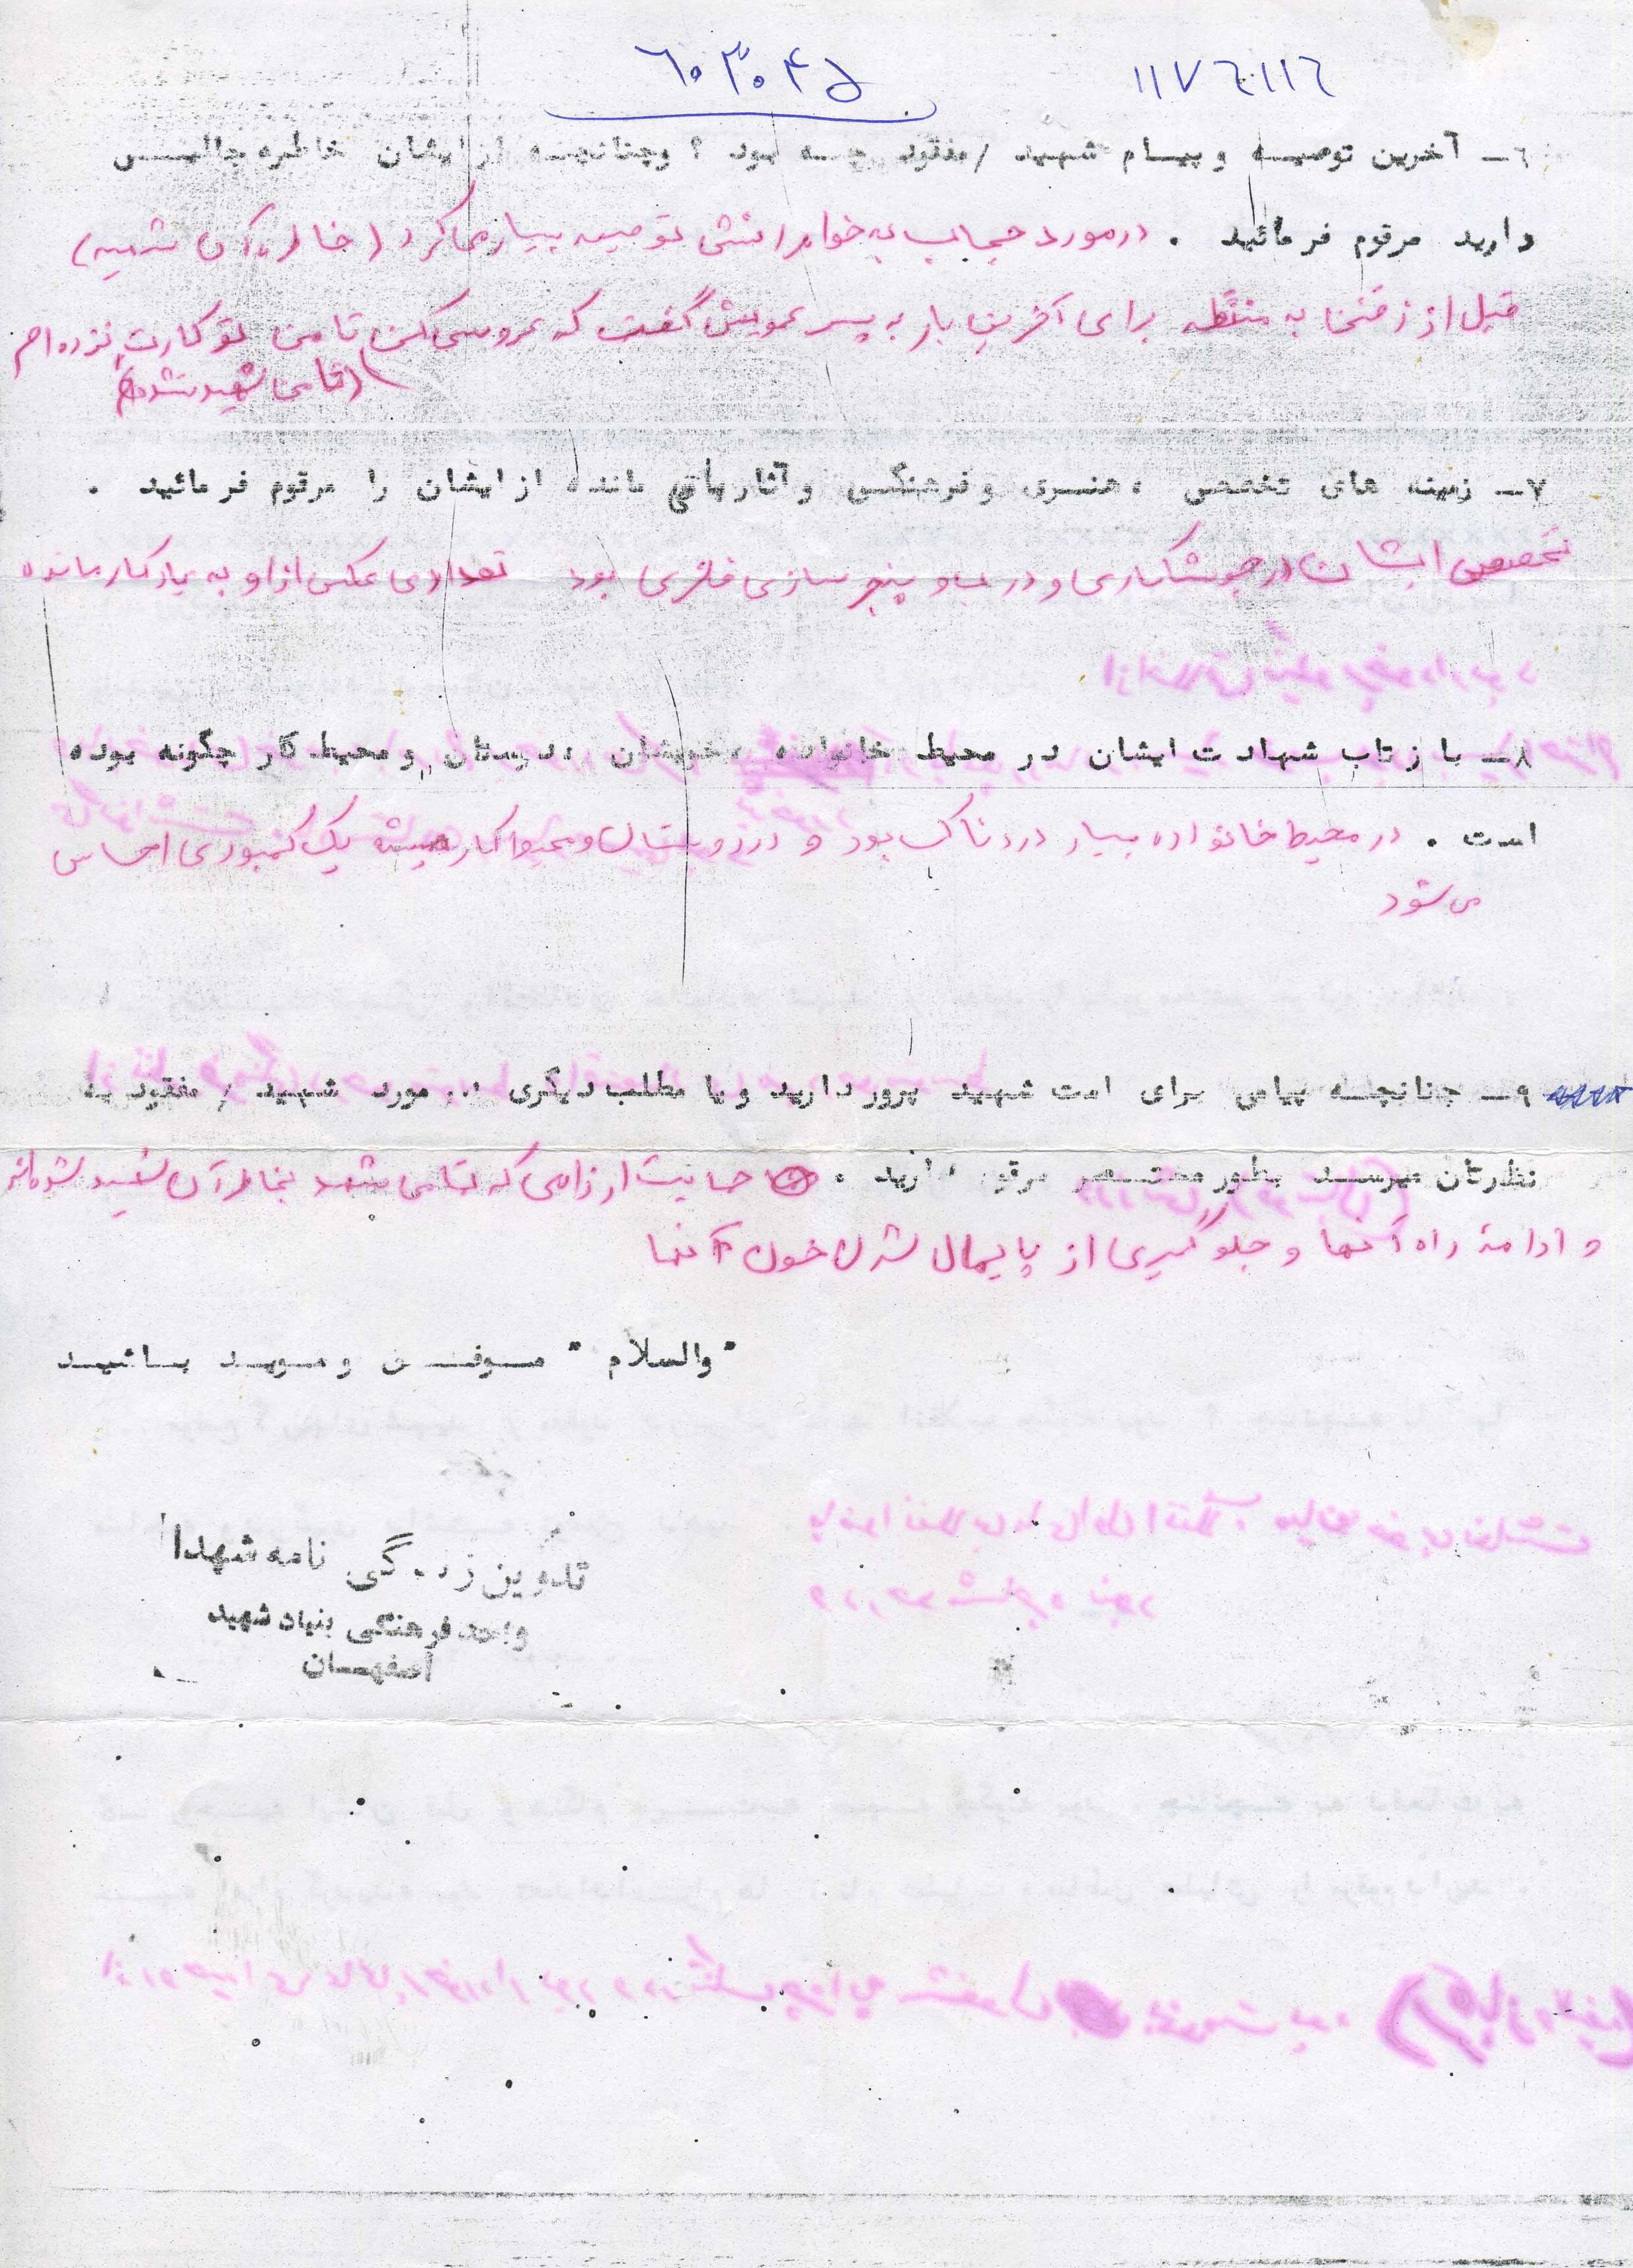 ۶۰۳۰۴۵
۱۱۷۶۱۱۶
۶ــ آخرین توصیه و پیام شهید / مفقود چه بود ؟ وچنانچه از ایشان خاطره جالبی
دارید مرقوم فرمائید . درمورد حجاب به خواهرانش توصیه بسیار می کرد (خاطره آن شهید)
قبل از رفتن به منطقه برای آخرین بار به پسر عمویش گفت که عروسی کن تا من تو کارت نزده ام
(تا من شهید نشده ام)
۷ــ زمینه های تخصصی ، هنری و فرهنگی و آثار باقی مانده از ایشان را مرقوم فرمائید .
تخصص ایشان در جوشکاری و درب و پنجره سازی فلزی بود تعدادی عکس از او به یادگار مانده
۸ــ باز تاب شهادت ایشان در محیط خانواده ، خویشان ، دوستان و محیط کار چگونه بوده
است . در محیط خانواده بسیار دردناک بود و در دوستان و محیط کار همیشه یک کمبودی احساس
می شود
۹ــ چنانچه پیامی برای امت شهید پرور دارید و یا مطلب دیگری در مورد شهید / مفقود به
نظرتان میرسد بطور مختصر مرقوم دارید . حمایت از که شهید بخاطر آن شهید شده اند
و ادامهٔ راه آنها و جلوگیری از پایمال شدن خون آنها
" والسلام " موفق و موید باشید
تدوین زندگی نامه شهدا
واحد فرهنگی بنیاد شهید
اصفهان